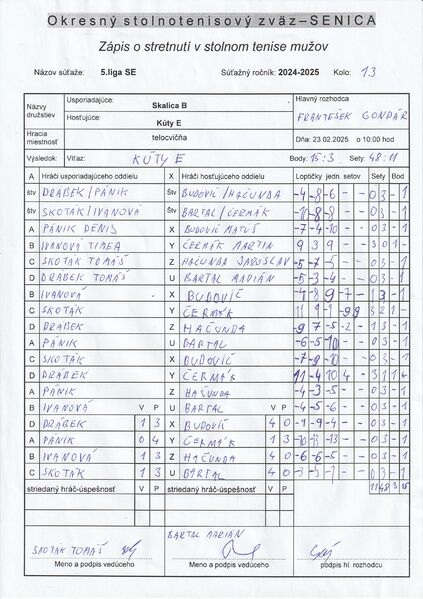 Okresný stolnotenisový zväz – SENICA
Zápis o stretnutí v stolnom tenise mužov
Názov súťaže: 5.liga SE Súťažný ročník: 2024-2025 Kolo: 13
Názvy družstiev Usporiadajúce: Skalica B Hlavný rozhodca
Hosťujúce: Kúty E FRANTEŠEK GONDÁR
Hracia miestnosť telocvičňa Dňa: 23.02.2025 o 10:00 hod
Výsledok: Víťaz: KÚTY E Body: 15:3 Sety: 48:11
A Hráči usporiadajúceho oddielu X Hráči hosťujúceho oddielu Loptičky jedn. setov Sety Bod
štv DRÁBEK/PÁNIK Štv BUDOVIČ/HAČUNDA -4 -8 -6 - - 03 - 1
štv SKOTÁK/IVANOVÁ Štv BARTAL/ČERMÁK -10 -8 -8 - - 03 - 1
A PÁNIK DENIS X BUDOVIČ MATÚŠ -7 -4 -10 - - 03 - 1
B IVANOVÁ TIMEA Y ČERMÁK MARTIN 9 3 9 - - 30 1 -
C SKOTÁK TOMÁŠ Z HAČUNDA JAROSLAV -5 -7 -5 - - 03 - 1
D DRÁBEK TOMÁŠ U BARTAL MARIÁN -5 -3 -4 - - 03 - 1
B IVANOVÁ X BUDOVIČ -4 -8 9 -7 - 13 - 1
C SKOTÁK Y ČERMÁK 11 9 -9 9 32 1 -
D DRÁBEK Z HAČUNDA -9 7 -5 -2 - 13 - 1
A PÁNIK U BARTAL -6 -5 -10 - - 03 - 1
C SKOTÁK X BUDOVIČ -7 -8 -10 - - 03 - 1
D DRÁBEK Y ČERMÁK 11 -4 10 4 - 31 1 -
A PÁNIK Z HAČUNDA -4 -3 -5 - - 03 - 1
B IVANOVÁ V P U BARTAL V P -4 -5 -6 - - 03 - 1
D DRÁBEK 1 3 X BUDOVIČ 4 0 -9 -9 -4 - - 03 - 1
A PÁNIK 0 4 Y ČERMÁK 1 3 -10 -13 -13 - - 03 - 1
B IVANOVÁ 1 3 Z HAČUNDA 4 0 -6 -6 -5 - - 03 - 1
C SKOTÁK 1 3 U BARTAL 4 0 - - 03 - 1
striedaný hráč-úspešnosť V P striedaný hráč-úspešnosť V P 11 48 3 15
SKOTÁK TOMÁŠ BARTAL MARIÁN
Meno a podpis vedúceho Meno a podpis vedúceho podpis hl. rozhodcu